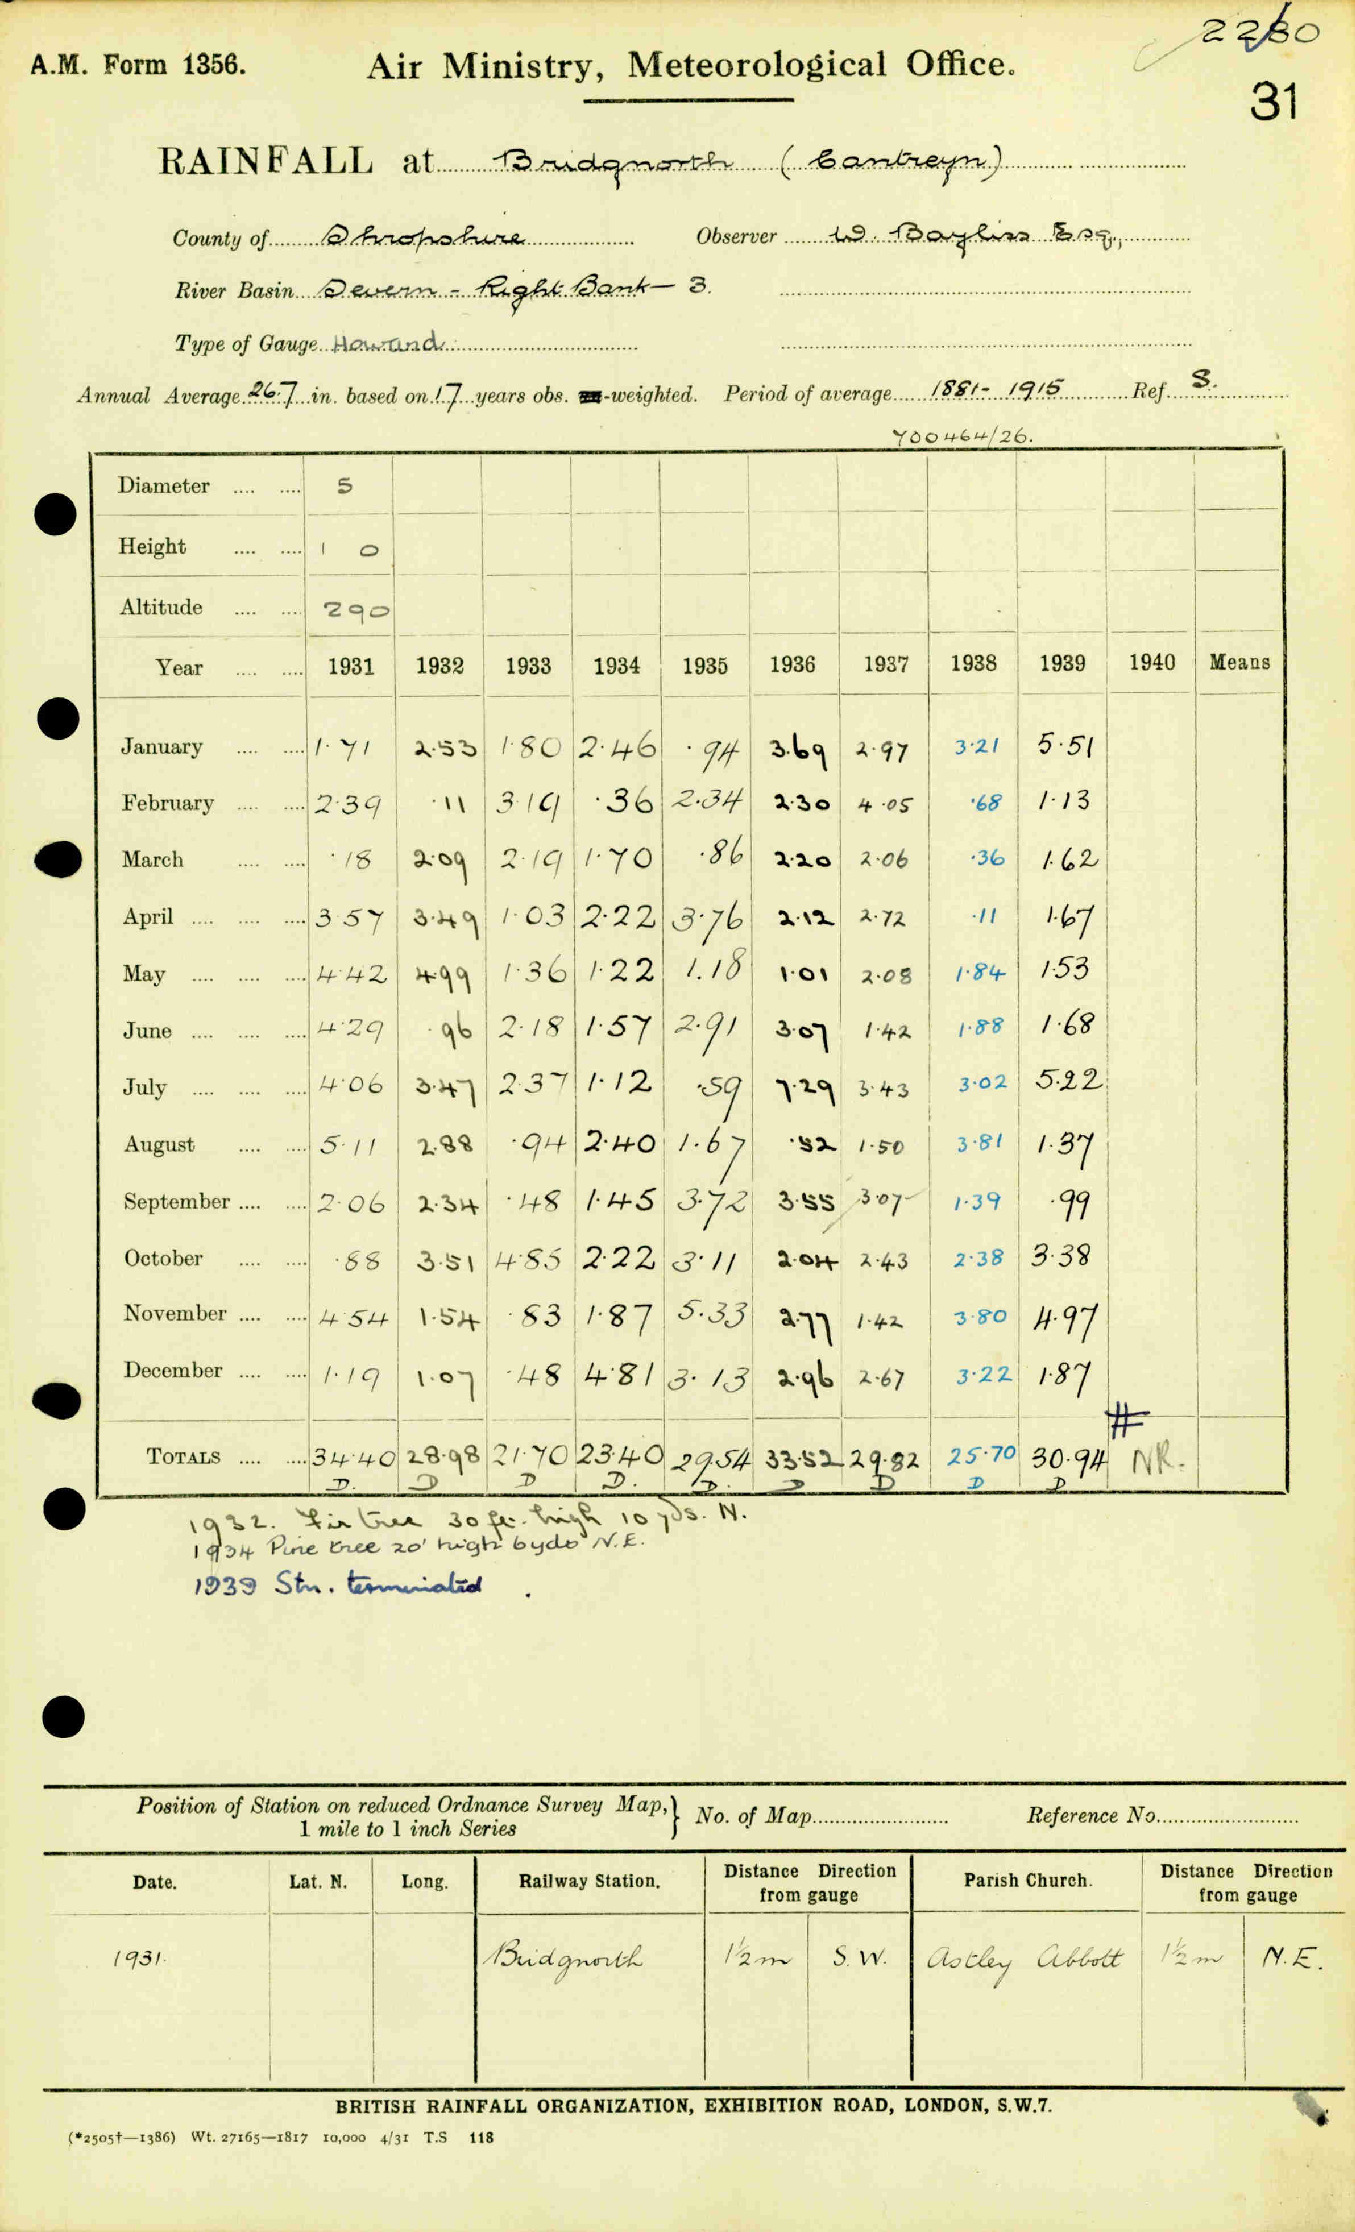 2280
A.M. Form 1356. Air Ministry, Meteorological Office.
31
RAINFALL at Bridgnorth (Cantreyn)
County of Shropshire Observer W. Bayliss Esq.,
River Basin Severn - Right Bank - 3.
Type of Gauge Howard
Annual Average 26.7 in. based on 17 years obs. -weighted. Period of average 1881-1915 Ref. S.
700464/26.
Diameter .... .... 5
Height .... .... 1 0
Altitude .... .... 290
Year .... .... 1931 1932 1933 1934 1935 1936 1937 1938 1939 1940 Means
January .... .... 1.71 2.53 1.80 2.46 .94 3.69 2.97 3.21 5.51
February .... .... 2.39 .11 3.19 .36 2.34 2.30 4.05 .68 1.13
March .... .... .18 2.09 2.19 1.70 .86 2.20 2.06 .36 1.62
April .... .... .... 3.57 3.49 1.03 2.22 3.76 2.12 2.72 .11 1.67
May .... .... .... 4.42 4.99 1.36 1.22 1.18 1.01 2.08 1.84 1.53
June .... .... .... 4.29 .96 2.18 1.57 2.91 3.07 1.42 1.88 1.68
July .... .... .... 4.06 3.47 2.37 1.12 .59 7.29 3.43 3.02 5.22
August .... .... 5.11 2.88 .94 2.40 1.67 .52 1.50 3.81 1.37
September .... .... 2.06 2.34 .48 1.45 3.72 3.55 3.07 1.39 .99
October .... .... .88 3.51 4.85 2.22 3.11 2.04 2.43 2.38 3.38
November .... .... 4.54 1.54 .83 1.87 5.33 2.77 1.42 3.80 4.97
December .... .... 1.19 1.07 .48 4.81 3.13 2.96 2.67 3.22 1.87
#
TOTALS .... .... 34.40 28.98 21.70 23.40 29.54 33.52 29.82 25.70 30.94 NR.
D. D D D. D. D D D D
1932. Fir tree 30 ft. high 10 yds. N.
1934 Pine tree 20' high 6 yds N.E.
1939 Stn. terminated.
Position of Station on reduced Ordnance Survey Map, } No. of Map Reference No.
1 mile to 1 inch Series
Date. Lat. N. Long. Railway Station. Distance Direction from gauge Parish Church. Distance Direction from gauge
1931. Bridgnorth 1½m S.W. Astley Abbott 1½m N.E.
BRITISH RAINFALL ORGANIZATION, EXHIBITION ROAD, LONDON, S.W.7.
(*2505†—1386) Wt. 27165—1817 10,000 4/31 T.S 118